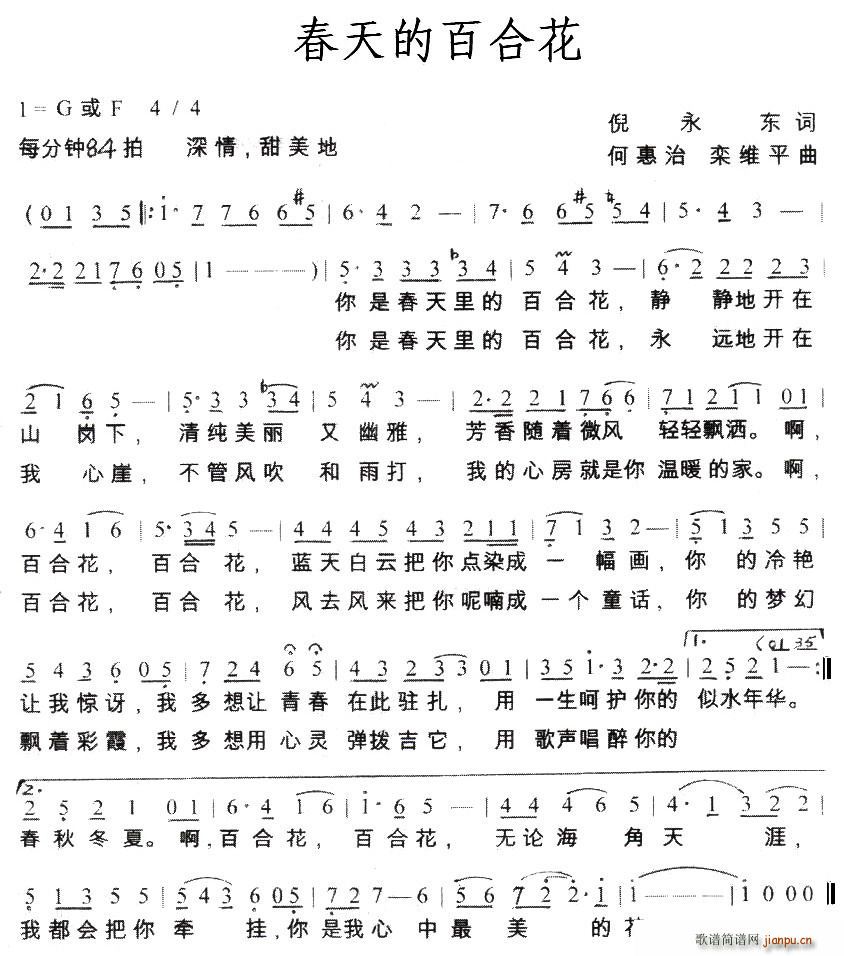 春天的百合花
1= G或F 4/4
倪永东词
每分钟84拍 深情,甜美地
何惠治 栾维平曲
(0 1 3 5 ‖: 1· 7 7 6 6 #5 | 6· 4 2 — | 7· 6 6 #5 ♮5 4 | 5· 4 3 — |
2·2 2 1 7 6 0 5 | 1 — — — ) | 5· 3 3 3 3 ♭3 4 | 5 4 3 — | 6· 2 2 2 2 2 3 |
你是春天里的 百合花, 静 静地开在
你是春天里的 百合花, 永 远地开在
2 1 6 5 — | 5· 3 3 3 ♭3 4 | 5 4 3 — | 2·2 2 2 1 7 6 6 | 7 1 2 1 1 0 1 |
山 岗下, 清纯美丽 又 幽雅, 芳香随着微风 轻轻飘洒。啊,
我 心崖, 不管风吹 和 雨打, 我的心房就是你 温暖的家。啊,
6· 4 1 6 | 5· 3 4 5 — | 4 4 4 5 4 3 2 1 1 | 7 1 3 2 — | 5 1 3 5 5 |
百合花, 百合 花, 蓝天白云把你点染成 一 幅画, 你 的冷艳
百合花, 百合 花, 风去风来把你呢喃成 一个童话, 你 的梦幻
1. (01 35
5 4 3 6 0 5 | 7 2 4 6 5 | 4 3 2 3 3 0 1 | 3 5 1· 3 2·2 | 2 5 2 1 — :‖
让我惊讶,我多想让 青春 在此驻扎, 用 一生呵护你的 似水年华。
飘着彩霞,我多想用 心灵 弹拨吉它, 用 歌声唱醉你的
2.
2 5 2 1 0 1 | 6· 4 1 6 | 1· 6 5 — | 4 4 4 6 5 | 4· 1 3 2 2 |
春秋冬夏。啊,百合花, 百合花, 无论海 角天 涯,
5 1 3 5 5 | 5 4 3 6 0 5 | 7 2 7 7 — 6 | 5 6 7 2 2· 1 | 1 — — — | 1 0 0 0 ‖
我都会把你 牵 挂,你是我心 中最 美 的
歌谱简谱网 jianpu.cn